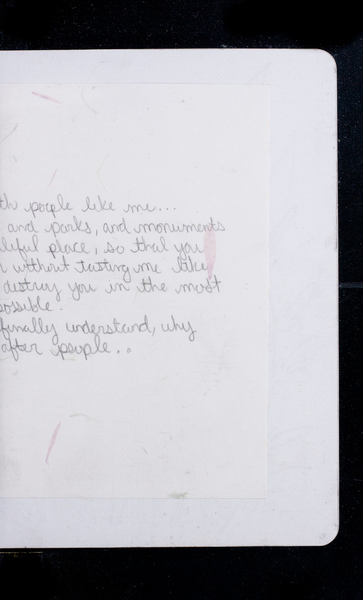 th people like me...
and parks, and monuments
tiful place, so that you
without tasting me like
destroy you in the most
possible.
finally understand, why
after people..